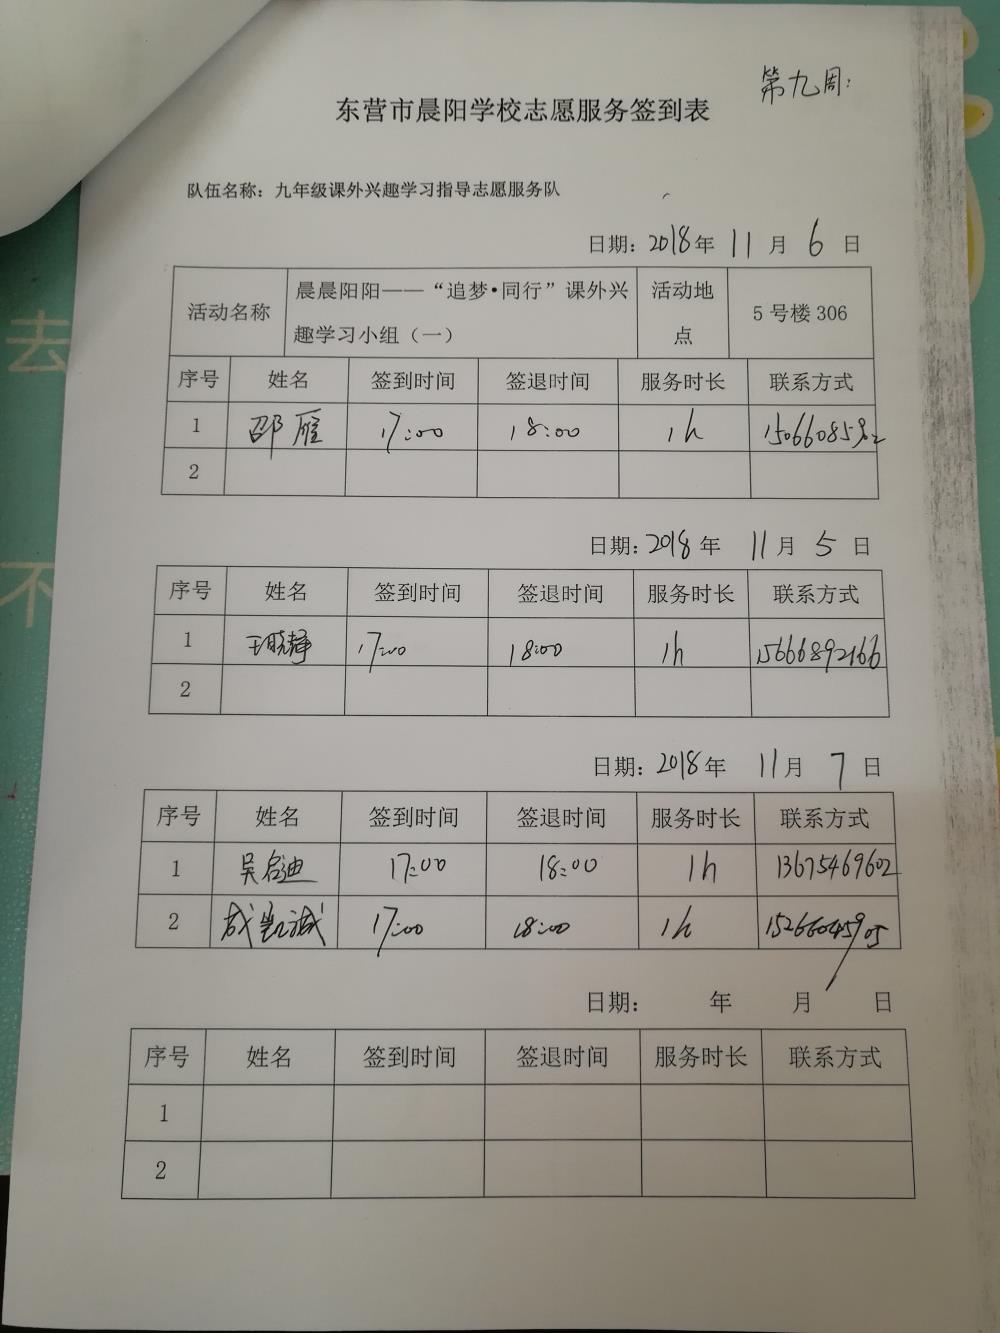 第九周:
东营市晨阳学校志愿服务签到表
队伍名称：九年级课外兴趣学习指导志愿服务队
日期：2018年 11 月 6 日
活动名称 晨晨阳阳——“追梦•同行”课外兴趣学习小组（一） 活动地点 5号楼306
序号 姓名 签到时间 签退时间 服务时长 联系方式
1 邵雁 17:00 18:00 1h 15066085302
2
日期：2018年 11月 5 日
序号 姓名 签到时间 签退时间 服务时长 联系方式
1 王晓静 17:00 18:00 1h 15666892166
2
日期：2018年 11月 7 日
序号 姓名 签到时间 签退时间 服务时长 联系方式
1 吴启迪 17:00 18:00 1h 13675469602
2 成凯诚 17:00 18:00 1h 15266045905
日期： 年 月 日
序号 姓名 签到时间 签退时间 服务时长 联系方式
1
2
去
不